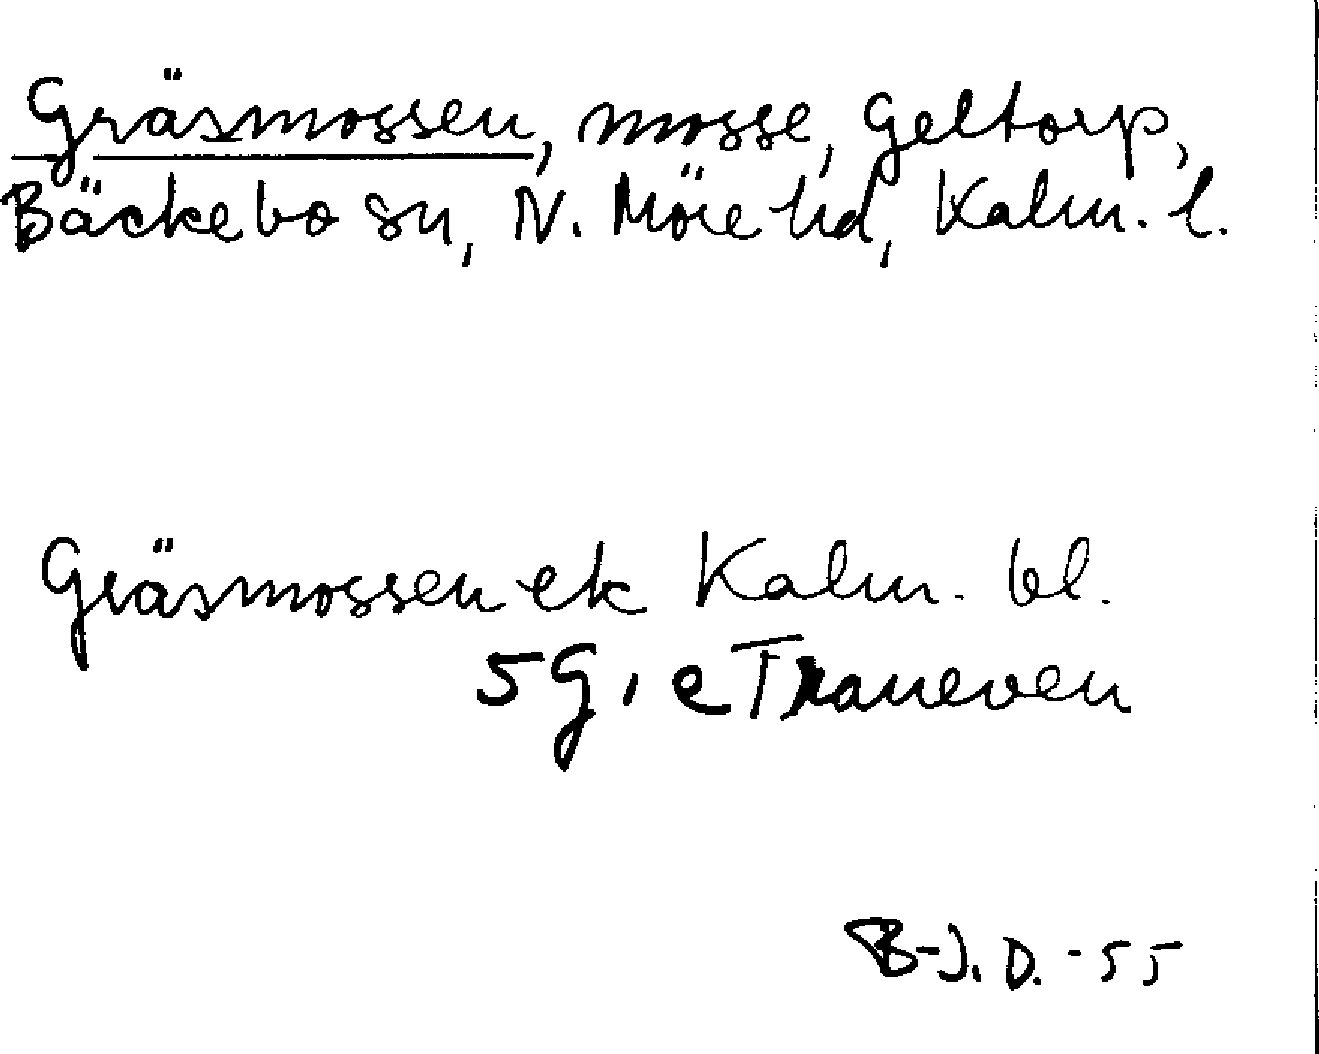 Gräsmossen, mosse, Geltorp,
Bäckebo sn, N. Möre hd, Kalm. l.
Gräsmossen ek Kalm. bl.
5 G, e Traneven
B-J. D. -55